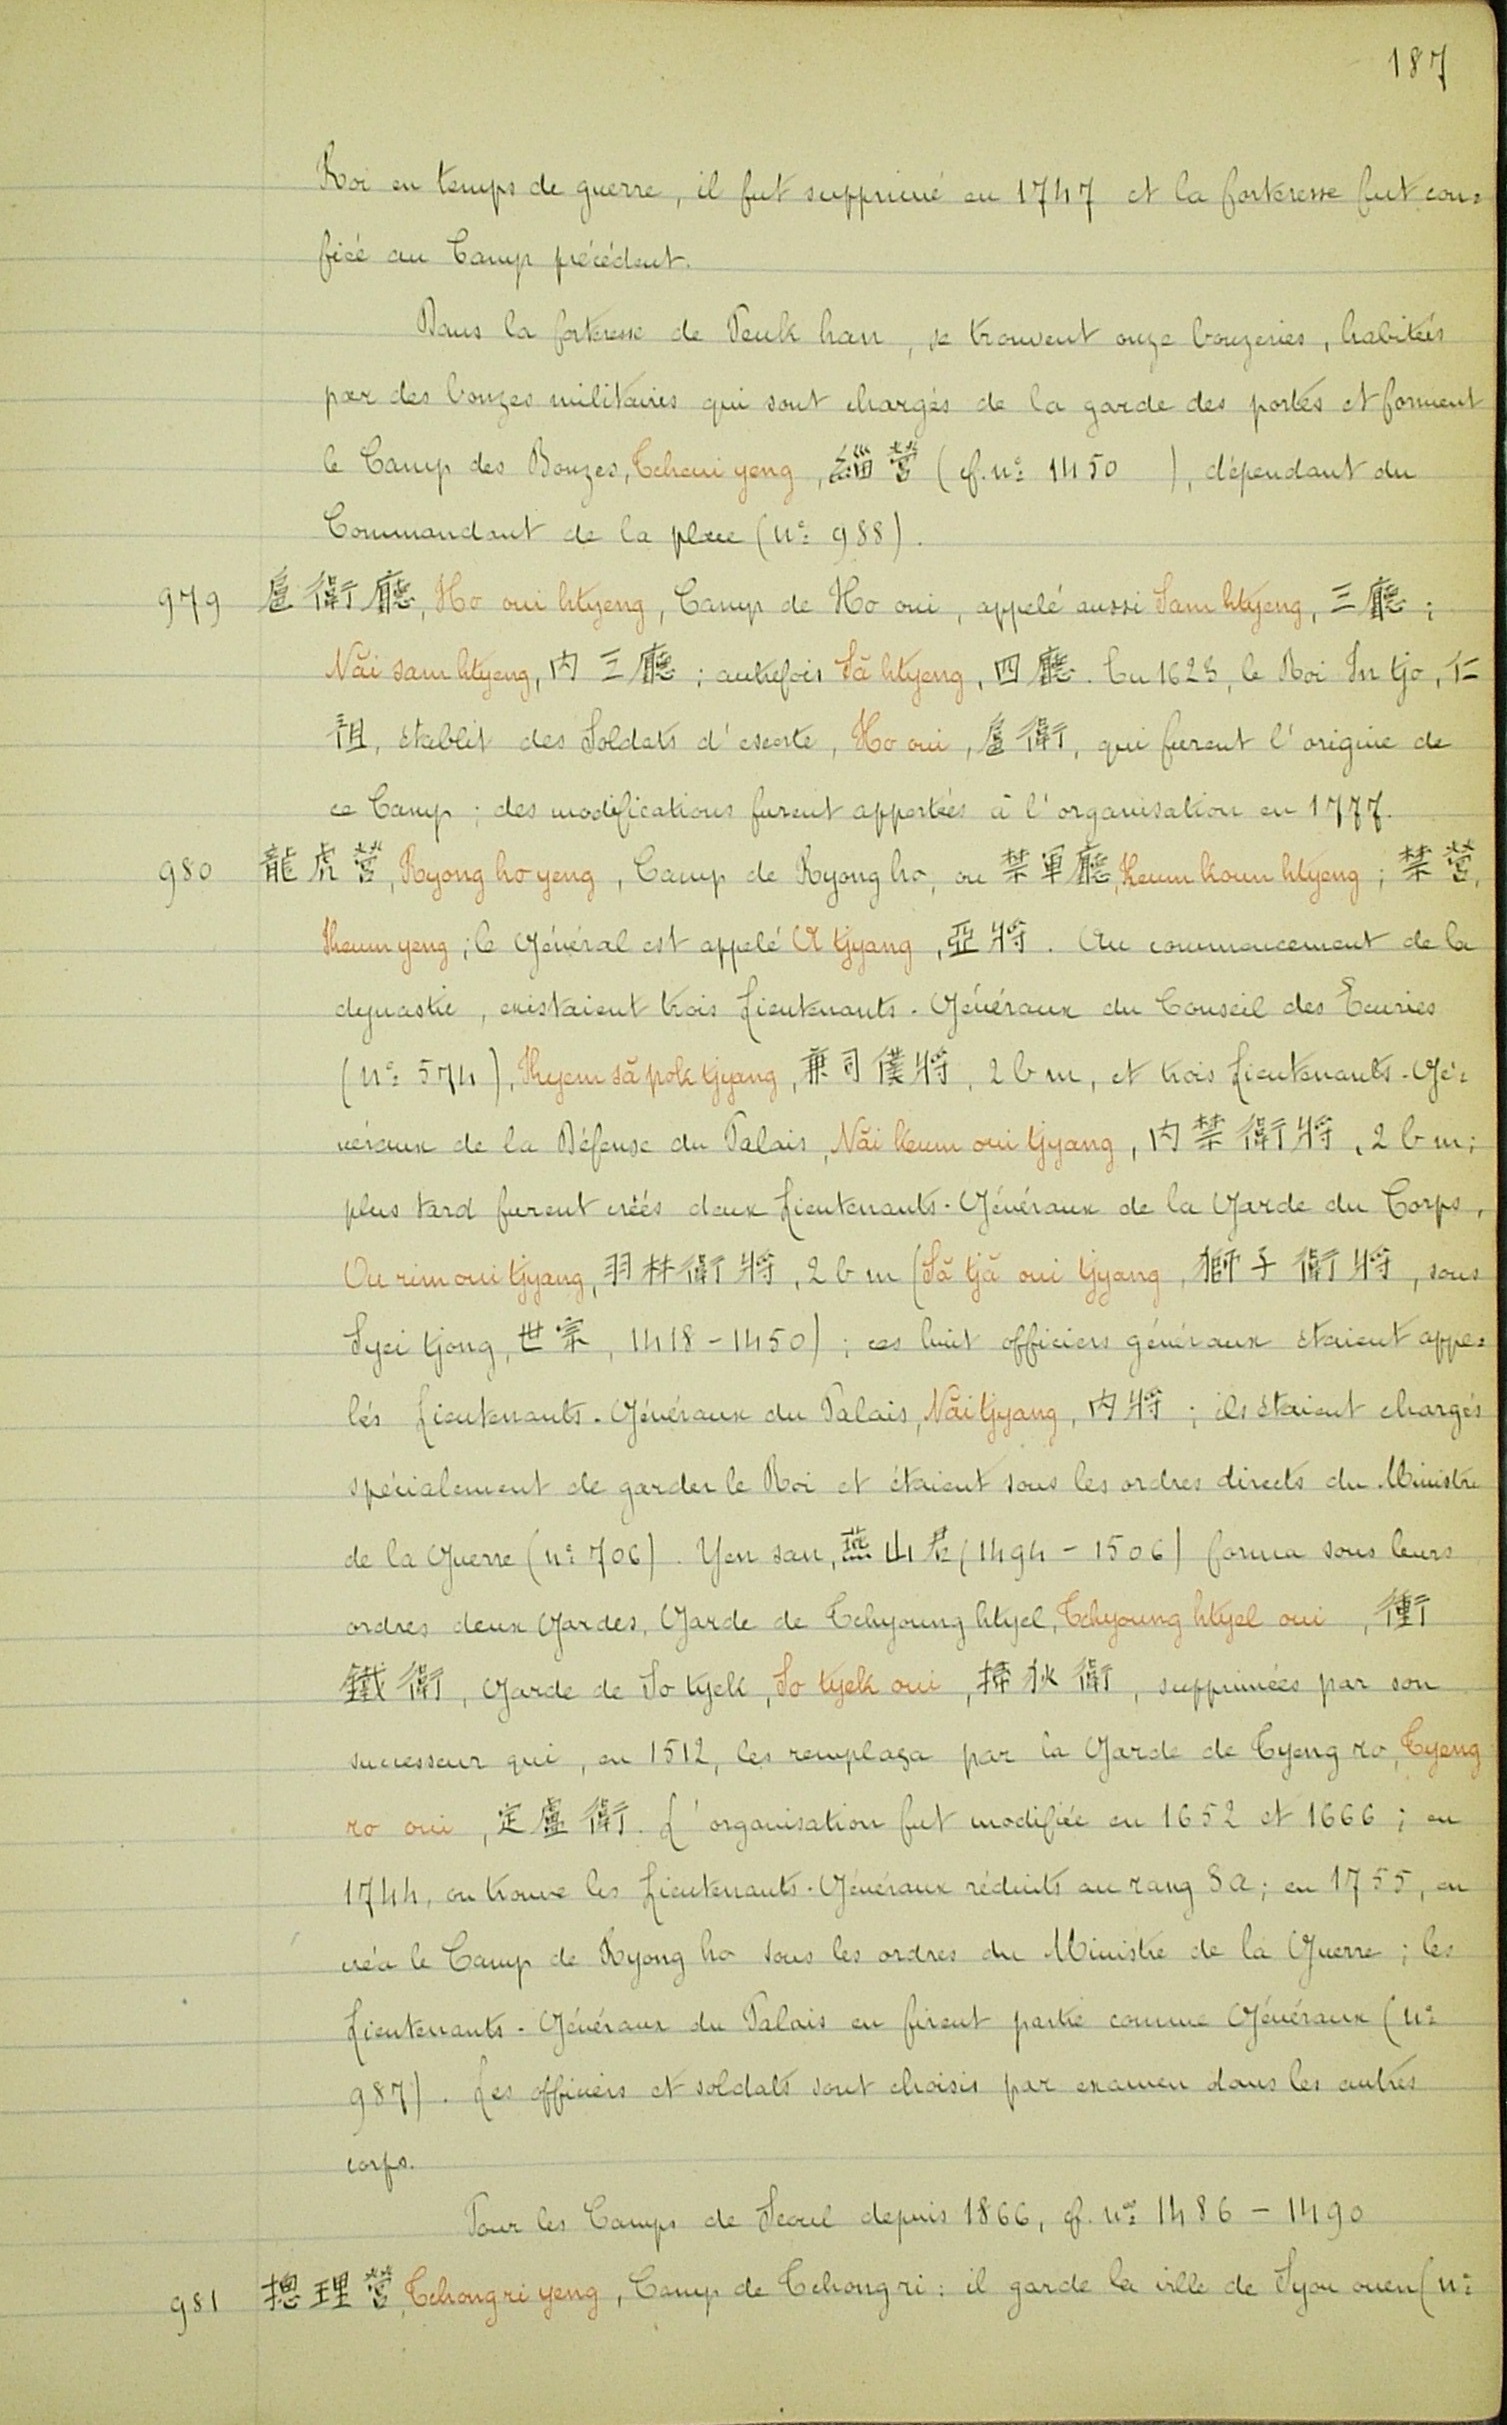 187
Roi en temps de guerre, il fut supprimé en 1747 et la forteresse fut con=
fiée au Camp précédent.
Dans la forteresse de Peuk han, se trouvent onze bonzeries, habitées
par des bonzes militaires qui sont chargés de la garde des portes et forment
le Camp des Bonzes, Tcheui yeng, 緇營 (cf. nº 1450 ), dépendant du
Commandant de la place (nº 988).
979 扈衛廳, Ho oui htyeng, Camp de Ho oui, appelé aussi Sam htyeng, 三廳;
Năi sam htyeng, 内三廳; autrefois Să htyeng, 四廳. En 1623, le Roi In tjo, 仁
祖, établit des Soldats d'escorte, Ho oui,扈衛, qui furent l'origine de
ce Camp; des modifications furent apportées à l'organisation en 1777.
980 龍虎營, Ryong ho yeng, Camp de Ryong ho, ou 禁軍廳, Keum koun htyeng; 禁營,
Keum yeng; le Général est appelé A tjyang, 亞將. Au commencement de la
dynastie, existaient trois Lieutenants-Généraux du Conseil des Ecuries
(nº 574), Kyem să pok tjyang, 兼司僕將, 2 b m, et trois Lieutenants-Gé=
néraux de la Défense du Palais, Năi keum oui tjyang, 内禁衛將, 2 b m;
plus tard furent créés deux Lieutenants-Généraux de la Garde du Corps,
Ou rim oui tjyang, 羽林衛將, 2 b m (Să tjă oui tjyang, 獅子衛將, sous
Syei tjong, 世宗, 1418-1450); ces huit officiers généraux étaient appe=
lés Lieutenants-Généraux du Palais, Năi tjyang, 内將; ils étaient chargés
spécialement de garder le Roi et étaient sous les ordres directs du Ministre
de la Guerre (nº 706). Yen san, 燕山君 (1494-1506) forma sous leurs
ordres deux Gardes, Garde de Tchyoung htyel, Tchyoung htyel oui, 衝
鐵衛, Garde de So tyek, So tyek oui, 掃狄衛, supprimées par son
successeur qui, en 1512, les remplaça par la Garde de Tyeng ro, Tyeng
ro oui, 定虜衛. L'organisation fut modifiée en 1652 et 1666; en
1744, on trouve les Lieutenants-Généraux réduits au rang 3 a; en 1755, on
créa le Camp de Ryong ho sous les ordres du Ministre de la Guerre; les
Lieutenants-Généraux du Palais en firent partie comme Généraux (nº
987). Les officiers et soldats sont choisis par examen dans les autres
corps.
Pour les Camps de Seoul depuis 1866, cf. nos 1486-1490
981 摠理營, Tchong ri yeng, Camp de Tchong ri: il garde la ville de Syou ouen (nº